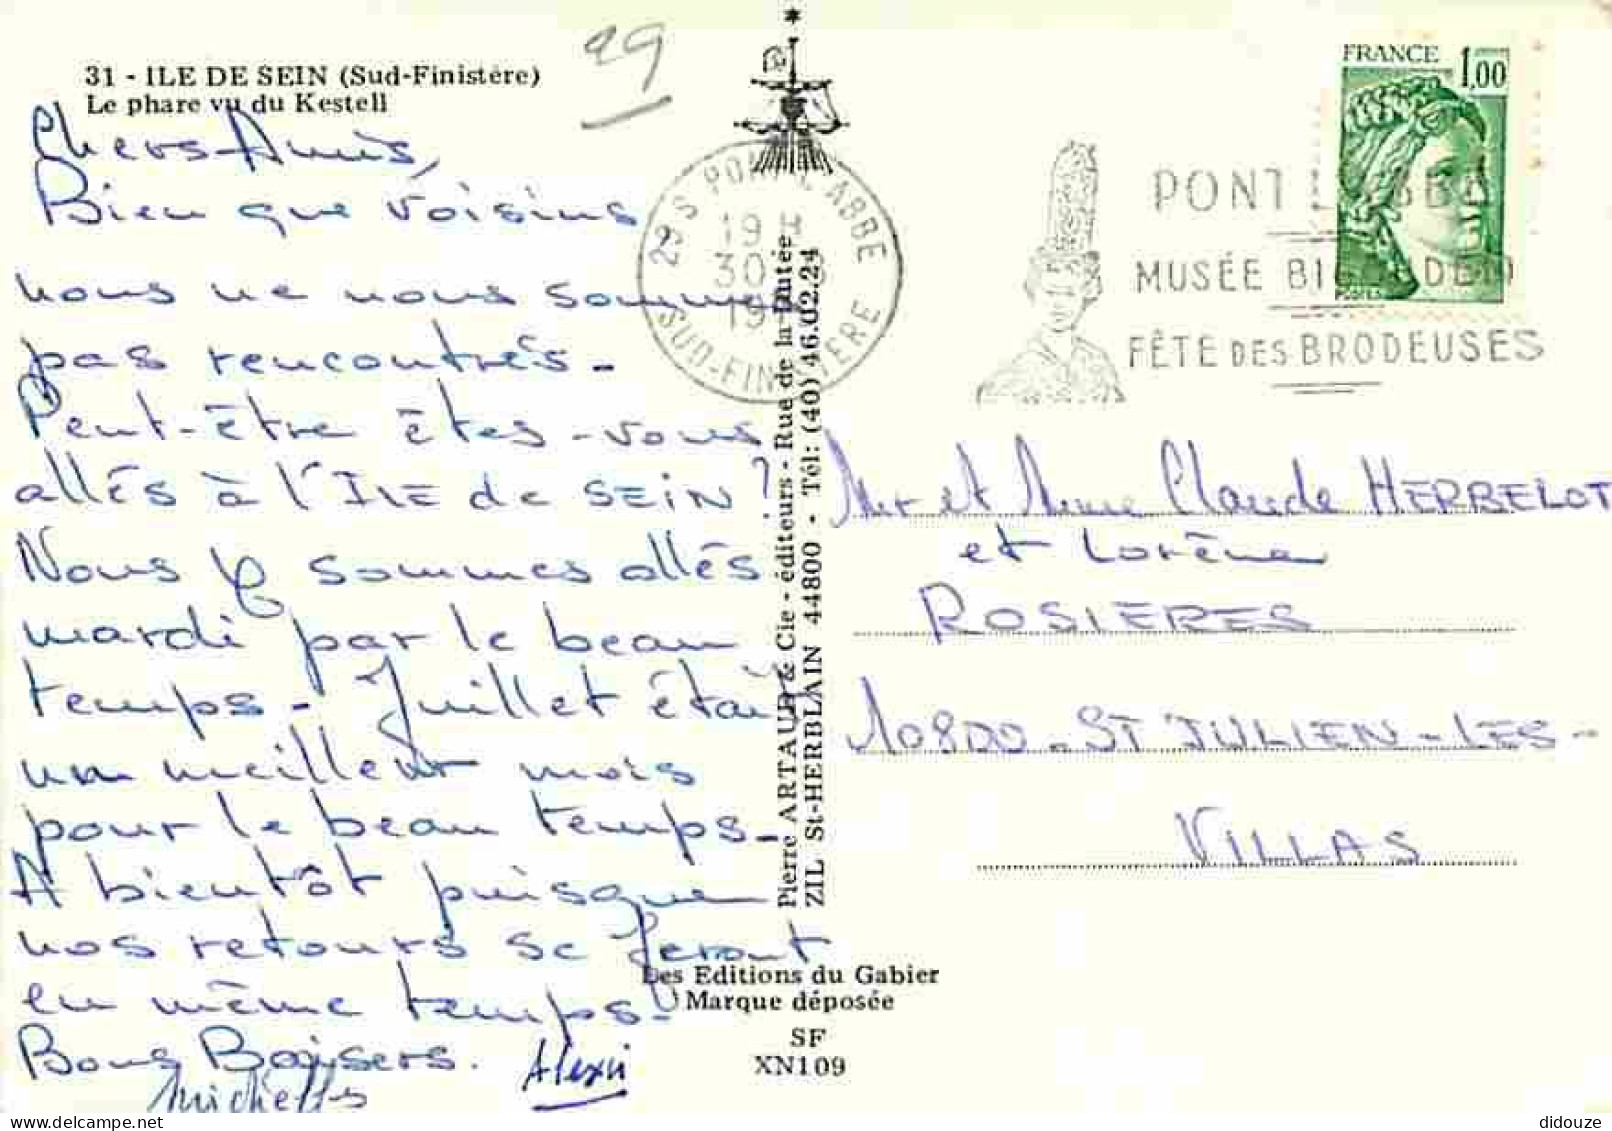 31 - ILE DE SEIN (Sud-Finistère)
Le phare vu du Kestell
29
Chers Amis,
Bien que voisins
nous ne nous sommes
pas rencontrés.
Peut-être êtes-vous
allés à l'ILE de SEIN ?
Nous y sommes allés
mardi par le beau
temps. Juillet était
un meilleur mois
pour le beau temps.
A bientôt puisque
nos retours se feront
en même temps.
Bons Baisers.
Alexis
29S PONT L'ABBE
19 H
30
19
SUD-FINISTERE
FRANCE 1,00
POSTES
PONT L'ABBE
MUSÉE BIGOUDEN
FÊTE DES BRODEUSES
Mr et Mme Claude HERBELOT
et Lorène
ROSIERES
10800 - ST JULIEN-LES-
VILLAS
Pierre ARTAUD & Cie - éditeurs - Rue de la Dutée
ZIL St-HERBLAIN 44800 - Tél: (40) 46.02.24
Les Editions du Gabier
Marque déposée
SF
XN109
didouze